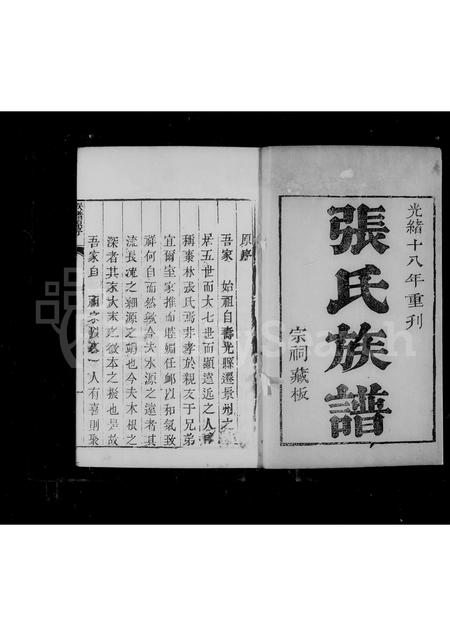 光緒十八年重刊
張氏族譜
宗祠藏板
原序
吾家 始祖自壽光縣遷景州之
居五世而大七世而顯遠近之人
稱棗林張氏焉并孝於親友于兄弟
宜爾室家推而睦婣任卹以和氣致
祥何自而然歟合夫水源之遠者其
流長洩之細源之弱也今夫木根之
深者其末大末之披本之撥也是故
吾家自 祖宗以來一人有喜則聚